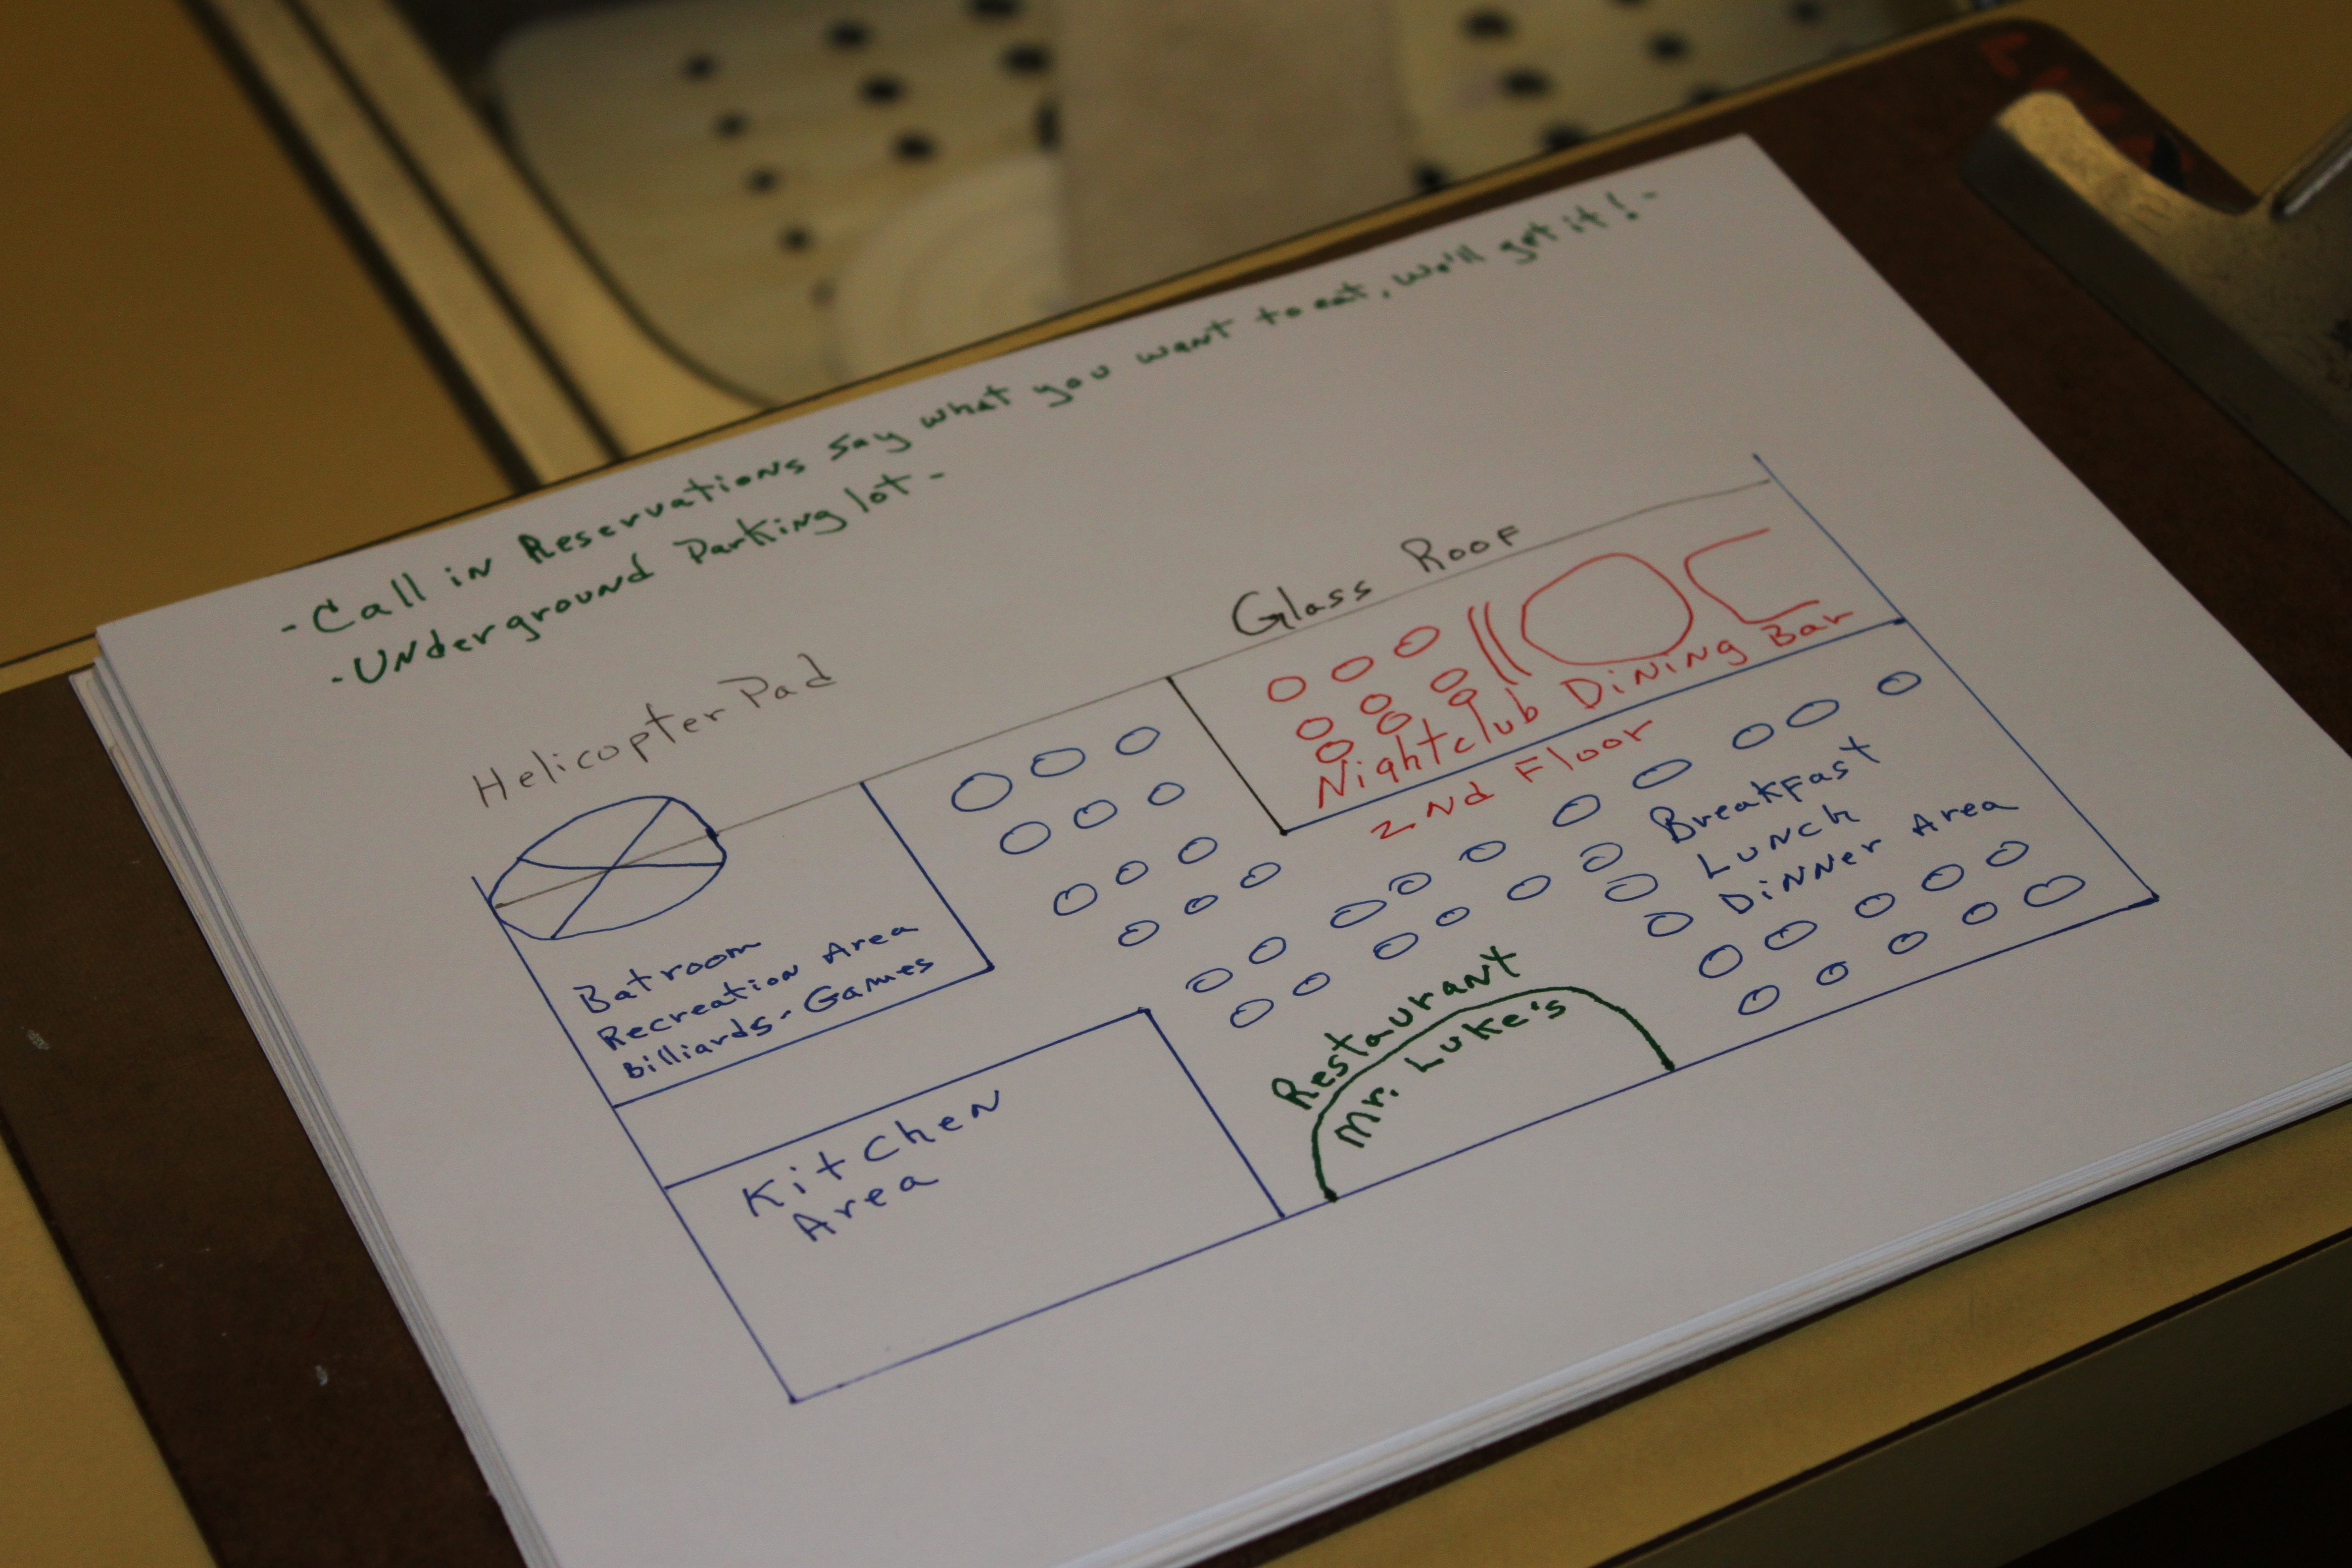 - Call in Reservations say what you want to eat, we'll get it! -
- Underground Parking lot -
Helicopter Pad
Glass Roof
Nightclub Dining Bar
2nd Floor
Breakfast
Lunch
Dinner Area
Batroom
Recreation Area
Billiards - Games
Kitchen
Area
Restaurant
Mr. Luke's